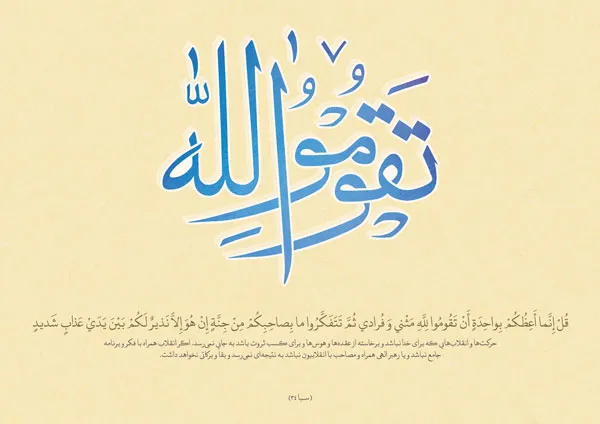 تَقُومُوا لِلّٰهِ
قُلْ إِنَّما أَعِظُكُمْ بِواحِدَةٍ أَنْ تَقُومُوا لِلَّهِ مَثْني وَ فُرادي ثُمَّ تَتَفَكَّرُوا ما بِصاحِبِكُمْ مِنْ جِنَّةٍ إِنْ هُوَ إِلاَّ نَذيرٌ لَكُمْ بَيْنَ يَدَيْ عَذابٍ شَديدٍ
حرکت‌ها و انقلاب‌هایی که برای خدا نباشد و برخاسته از عقده‌ها و هوس‌ها و برای کسب ثروت باشد به جایی نمی‌رسد. اگر انقلاب همراه با فکر و برنامه
جامع نباشد و یا رهبر الهی همراه و مصاحب با انقلابیون نباشد به نتیجه‌ای نمی‌رسد و بقا و برکتی نخواهد داشت.
(سبا ٣٤)